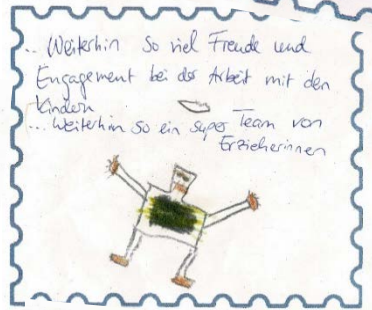 ... Weiterhin so viel Freude und
Engagement bei der Arbeit mit den
Kindern
... Weiterhin so ein super Team von
Erzieherinnen